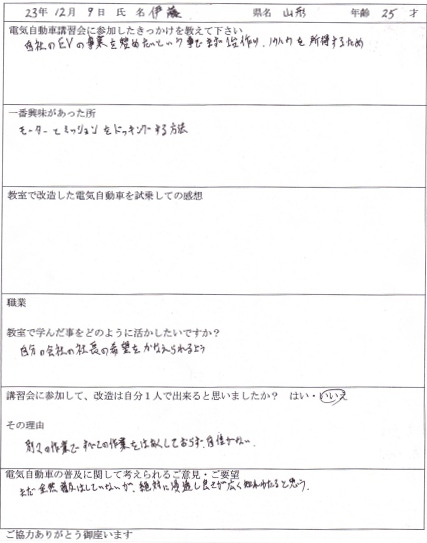 23年 12月 9日 氏 名 伊藤 県名 山形 年齢 25 才
電気自動車講習会に参加したきっかけを教えて下さい
自社のEVの事業を進めたいという事で 試作 を所得するため
一番興味があった所
モーターとミッションをドッキングする方法
教室で改造した電気自動車を試乗しての感想
職業
教室で学んだ事をどのように活かしたいですか？
自分の会社の社長の希望をかなえられるよう
講習会に参加して、改造は自分１人で出来ると思いましたか？ はい・いいえ
その理由
別々の作業で すべての作業を しておらず、自信がない.
電気自動車の普及に関して考えられるご意見・ご要望
まだ全然普及はしていないが、絶対に浸透し良さが広く知れわたると思う.
ご協力ありがとう御座います